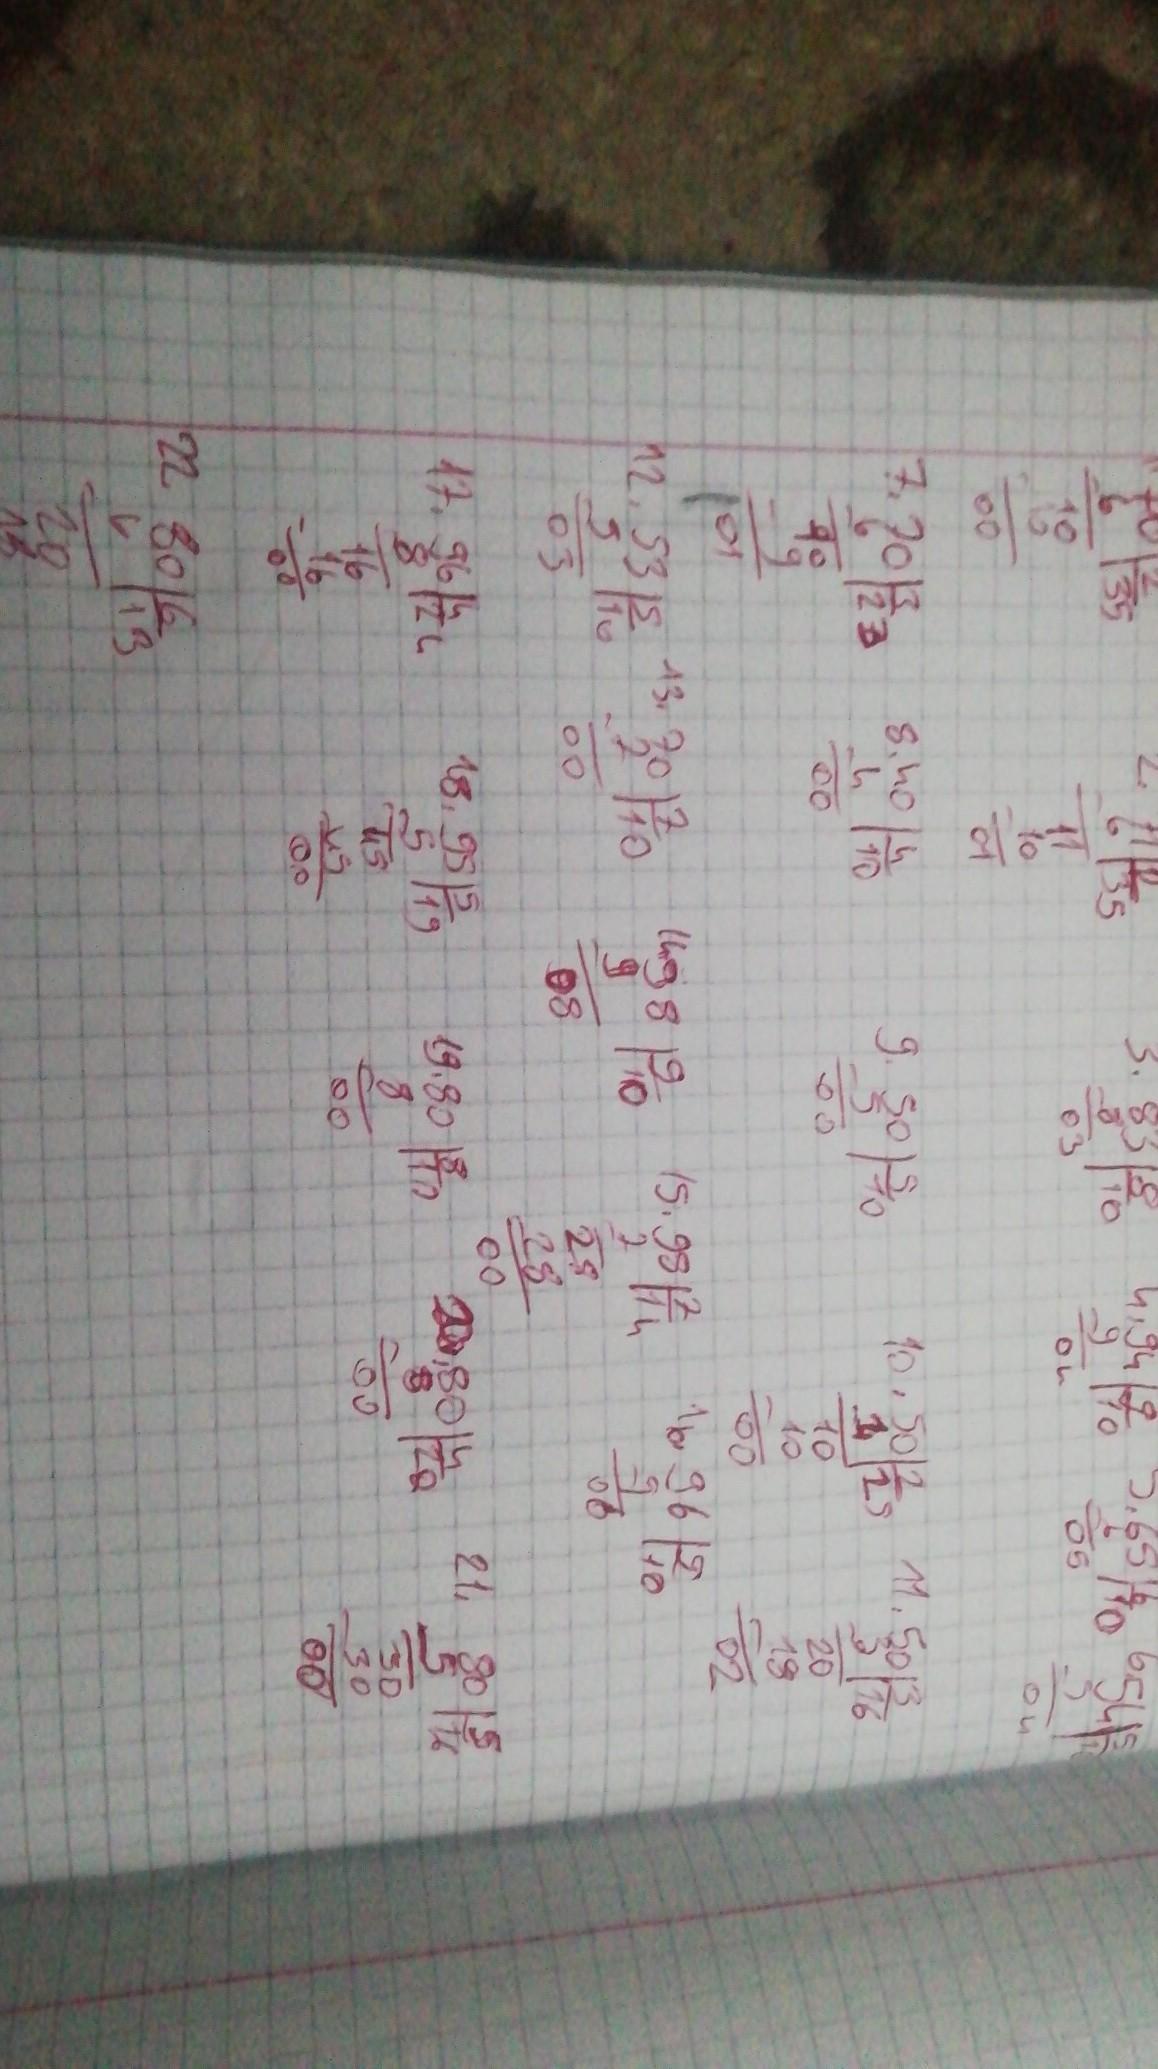 1. 70 | 2 2. 71 | 2 3. 83 | 8 4. 94 | 9 5. 65 | 6 6. 54 | 5
6 35 6 35 8 10 9 10 6 10 5
10 11 03 04 05 04
10 10
00 01
7. 70 | 3 8. 40 | 4 9. 50 | 5 10. 50 | 2 11. 50 | 3
6 23 4 10 5 10 4 25 3 16
10 00 00 10 20
9 10 18
01 00 02
12. 53 | 5 13. 70 | 7 14. 98 | 9 15. 98 | 7 16. 96 | 9
5 10 7 10 9 10 7 14 9 10
03 00 08 28 06
28
00
17. 96 | 4 18. 95 | 5 19. 80 | 8 20. 80 | 4 21. 80 | 5
8 24 5 19 8 10 8 20 5 16
16 45 00 00 30
16 45 30
00 00 00
22 80 | 6
6 13
20
18